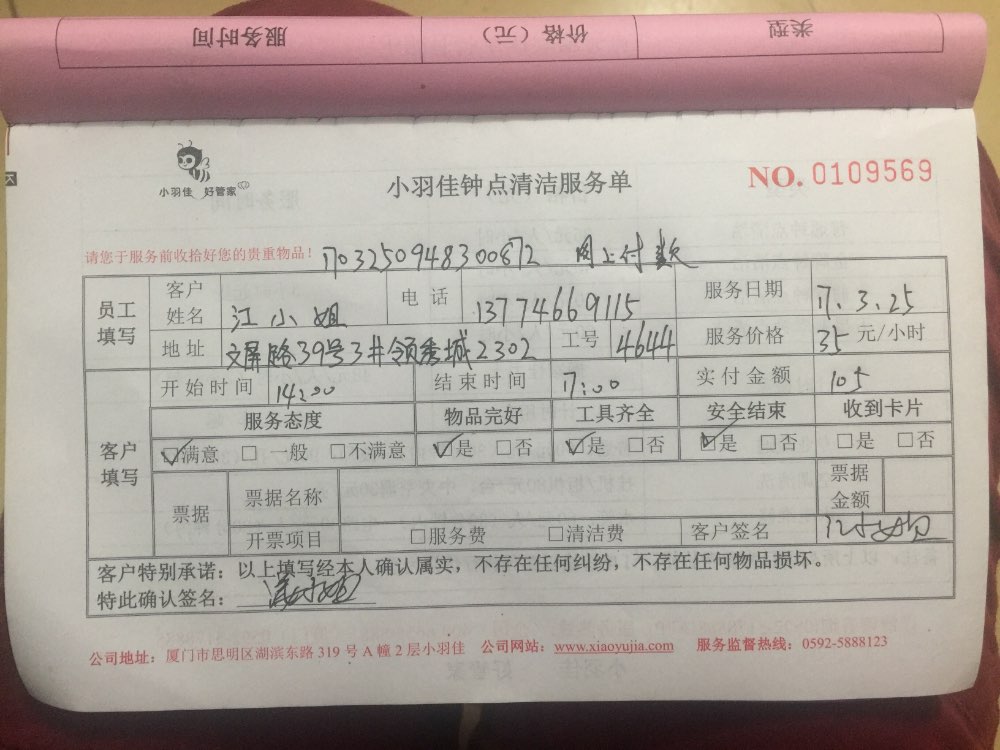 服务时间 价格（元） 类型
小羽佳 好管家
小羽佳钟点清洁服务单
NO. 0109569
请您于服务前收拾好您的贵重物品！ 1703250948300872 网上付款
员工填写 客户姓名 江小姐 电话 13774669115 服务日期 17.3.25
地址 文屏路39号3#领秀城2302 工号 4644 服务价格 35 元/小时
客户填写 开始时间 14:00 结束时间 17:00 实付金额 105
服务态度 物品完好 工具齐全 安全结束 收到卡片
☑满意 □一般 □不满意 ☑是 □否 ☑是 □否 ☑是 □否 □是 □否
票据 票据名称 票据金额
开票项目 □服务费 □清洁费 客户签名 江小姐
客户特别承诺：以上填写经本人确认属实，不存在任何纠纷，不存在任何物品损坏。
特此确认签名：
公司地址：厦门市思明区湖滨东路 319 号 A 幢 2 层小羽佳 公司网站：www.xiaoyujia.com 服务监督热线：0592-5888123